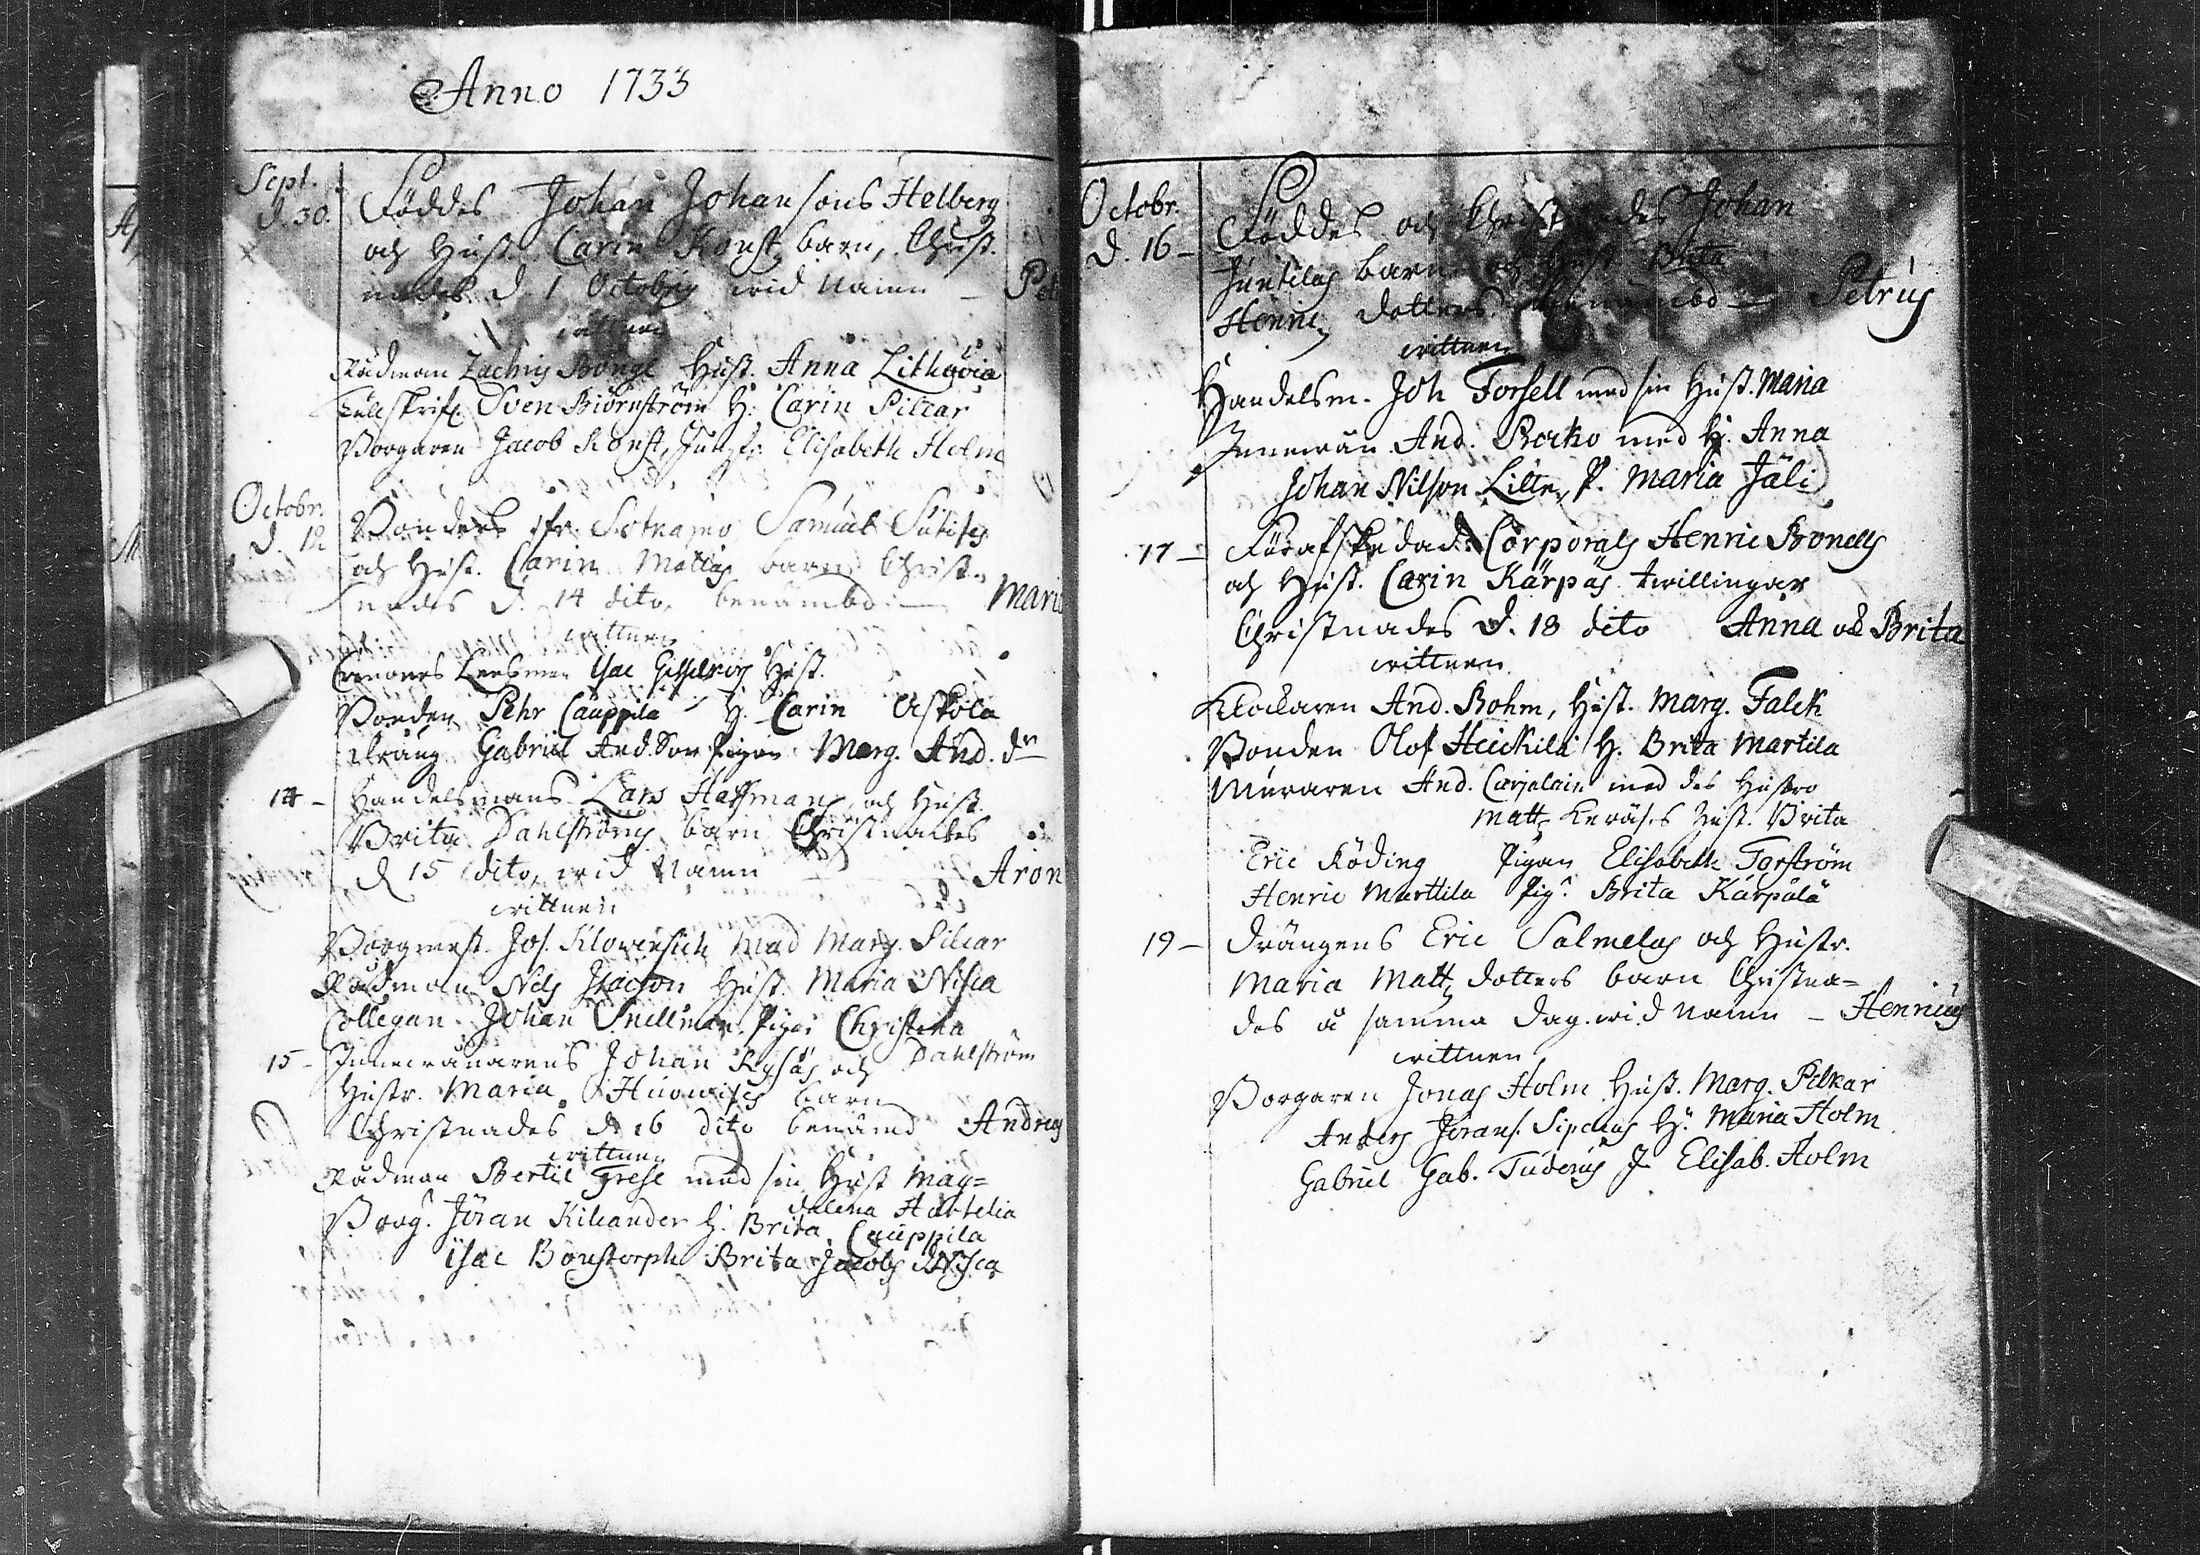 Anno 1733
Sept.
d. 30.
Föddes Johan Johansons Helberg
och Hust. Carin Konst barn, Christ-
nades d. 1 Octobris wid namn — Pet
wittnen
Rådman Zachris Bonge Hust. Anna Lithovia
Tullskrif. Sven Biörnström H. Carin Pilcar
Borgaren Jacob Konst, Jungfr. Elisabeth Holm
Octobr.
d. 12
Bondens ifr. Sotkamo Samuel
och Hust. Carin Mattis barn Christ-
nades d. 14 dito, benämbd — Mari
wittnen
Cronones Leensman Isac Hust.
Bonden Pehr Cauppila H. Carin Askola
dräng Gabriel And.Son Pigan Marg. And. dr
14 - Handelsmans Lars Haffmans och Hust.
Brita Dahlströms barn Christnades
d 15 dito, wid namn Aron
wittnen
Borgmest. Jos. Klowensich Mad Marg. Pilcar
Rådman Nils Isacson Hust. Maria Nisca
Collegan Johan Snellman. Pigan Christina
Dahlström
15 - Innewånarens Johan och
Hustr. Maria barn
Christnades d 16 dito benämd Andreas
wittnen
Rådman Bertil Frese med sin Hust Mag=
dalena
Borg. Jöran Kiliander H. Brita Cauppila
Isac Bonstorph Brita Jacobs Nisca
Octobr.
d. 16 -
Föddes och Christnades Johan
Juntilas barn och Hust Brita
Henric dotters benämbd — Petrus
wittnen
Handelsm. Joh Forsell med sin Hust. Maria
Innewån And. med H. Anna
Johan Nilson P. Maria Jäli
17 - Förafskedad Corporals Henric Bonells
och Hust. Carin Kärpäs twillingar
Christnades d. 18 dito Anna och Brita
wittnen
Klockaren And. Bohm, Hust. Marg. Falck
Bonden Olof Heickilä H. Brita Martila
Muraren And. Carjalain med des Hustro
Matts Keräs Hust. Brita
Eric Röding Pigan Elisabeth Torström
Henric Marttila Pig. Brita Kärpälä
19 - Drängens Eric Salmelas och Hustr.
Maria Matts dotters barn Christna=
des å samma dag. wid namn - Henricus
wittnen
Borgaren Jonas Holm Hust. Marg. Pelkar
Anders Jörans. H. Maria Holm
Gabriel Gab. Tuderus J. Elisab. Holm